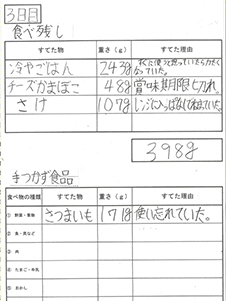 3日目
食べ残し
すてた物 重さ(g) すてた理由
冷やごはん 243g 次に使うと思っていたらかたくなっていた。
チーズかまぼこ 48g 賞味期限切れ。
さけ 107g レンジに入っぱなしでわすれていた。
398g
手つかず食品
食べ物の種類 すてた物 重さ(g) すてた理由
① 野菜・果物 さつまいも 171g 使い忘れていた。
② 魚・貝など
③ 肉
④ たまご・牛乳
⑤ おかし